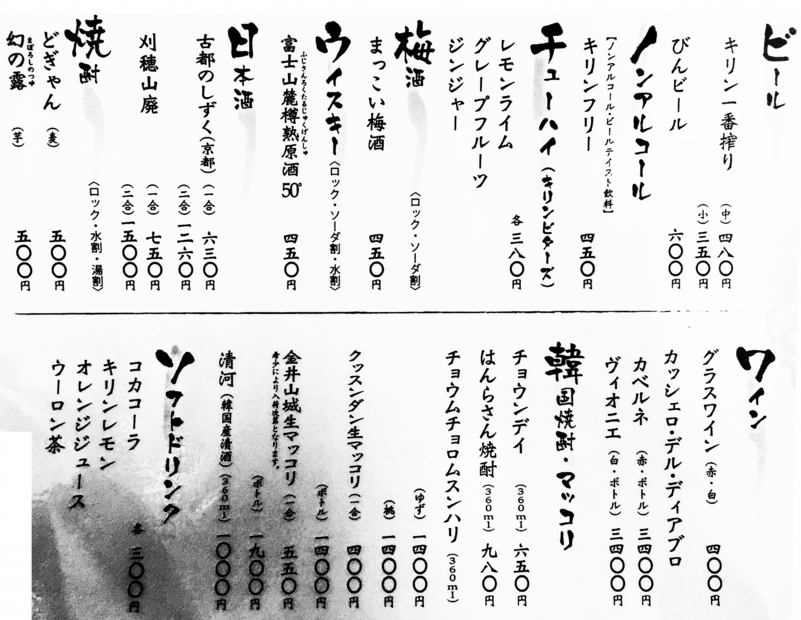 ビール
キリン一番搾り
(中) 四八〇円
(小) 三五〇円
びんビール 六〇〇円
ノンアルコール
【ノンアルコール・ビールテイスト飲料】
キリンフリー 四五〇円
チューハイ (キリンビターズ)
レモンライム
グレープフルーツ
ジンジャー
各 三八〇円
梅酒 〈ロック・ソーダ割〉
まっこい梅酒 四五〇円
ウイスキー 〈ロック・ソーダ割・水割〉
ふじさんろくたるじゅくげんしゅ
富士山麓樽熟原酒50° 四五〇円
日本酒
古都のしずく(京都) (一合) 六三〇円
(二合) 一二六〇円
刈穂山廃 (一合) 七五〇円
(二合) 一五〇〇円
焼酎 〈ロック・水割・湯割〉
どぎゃん (麦) 五〇〇円
まぼろしのつゆ
幻の露 (芋) 五〇〇円
ワイン
グラスワイン (赤・白) 四〇〇円
カッシェロ・デル・ディアブロ
カベルネ (赤・ボトル) 三四〇〇円
ヴィオニエ (白・ボトル) 三四〇〇円
韓国焼酎・マッコリ
チョウンデイ (360ml) 六五〇円
はんらさん焼酎 (360ml) 九八〇円
チョウムチョロムスンハリ (360ml)
(ゆず) 一四〇〇円
(桃) 一四〇〇円
クッスンダン生マッコリ (一合) 四〇〇円
(ボトル) 一四〇〇円
金井山城生マッコリ (一合) 五五〇円
季節により入荷次第となります。
(ボトル) 一九〇〇円
清河 (韓国産清酒) (360ml) 一〇〇〇円
ソフトドリンク
コカコーラ
キリンレモン
オレンジジュース
ウーロン茶
各 三〇〇円